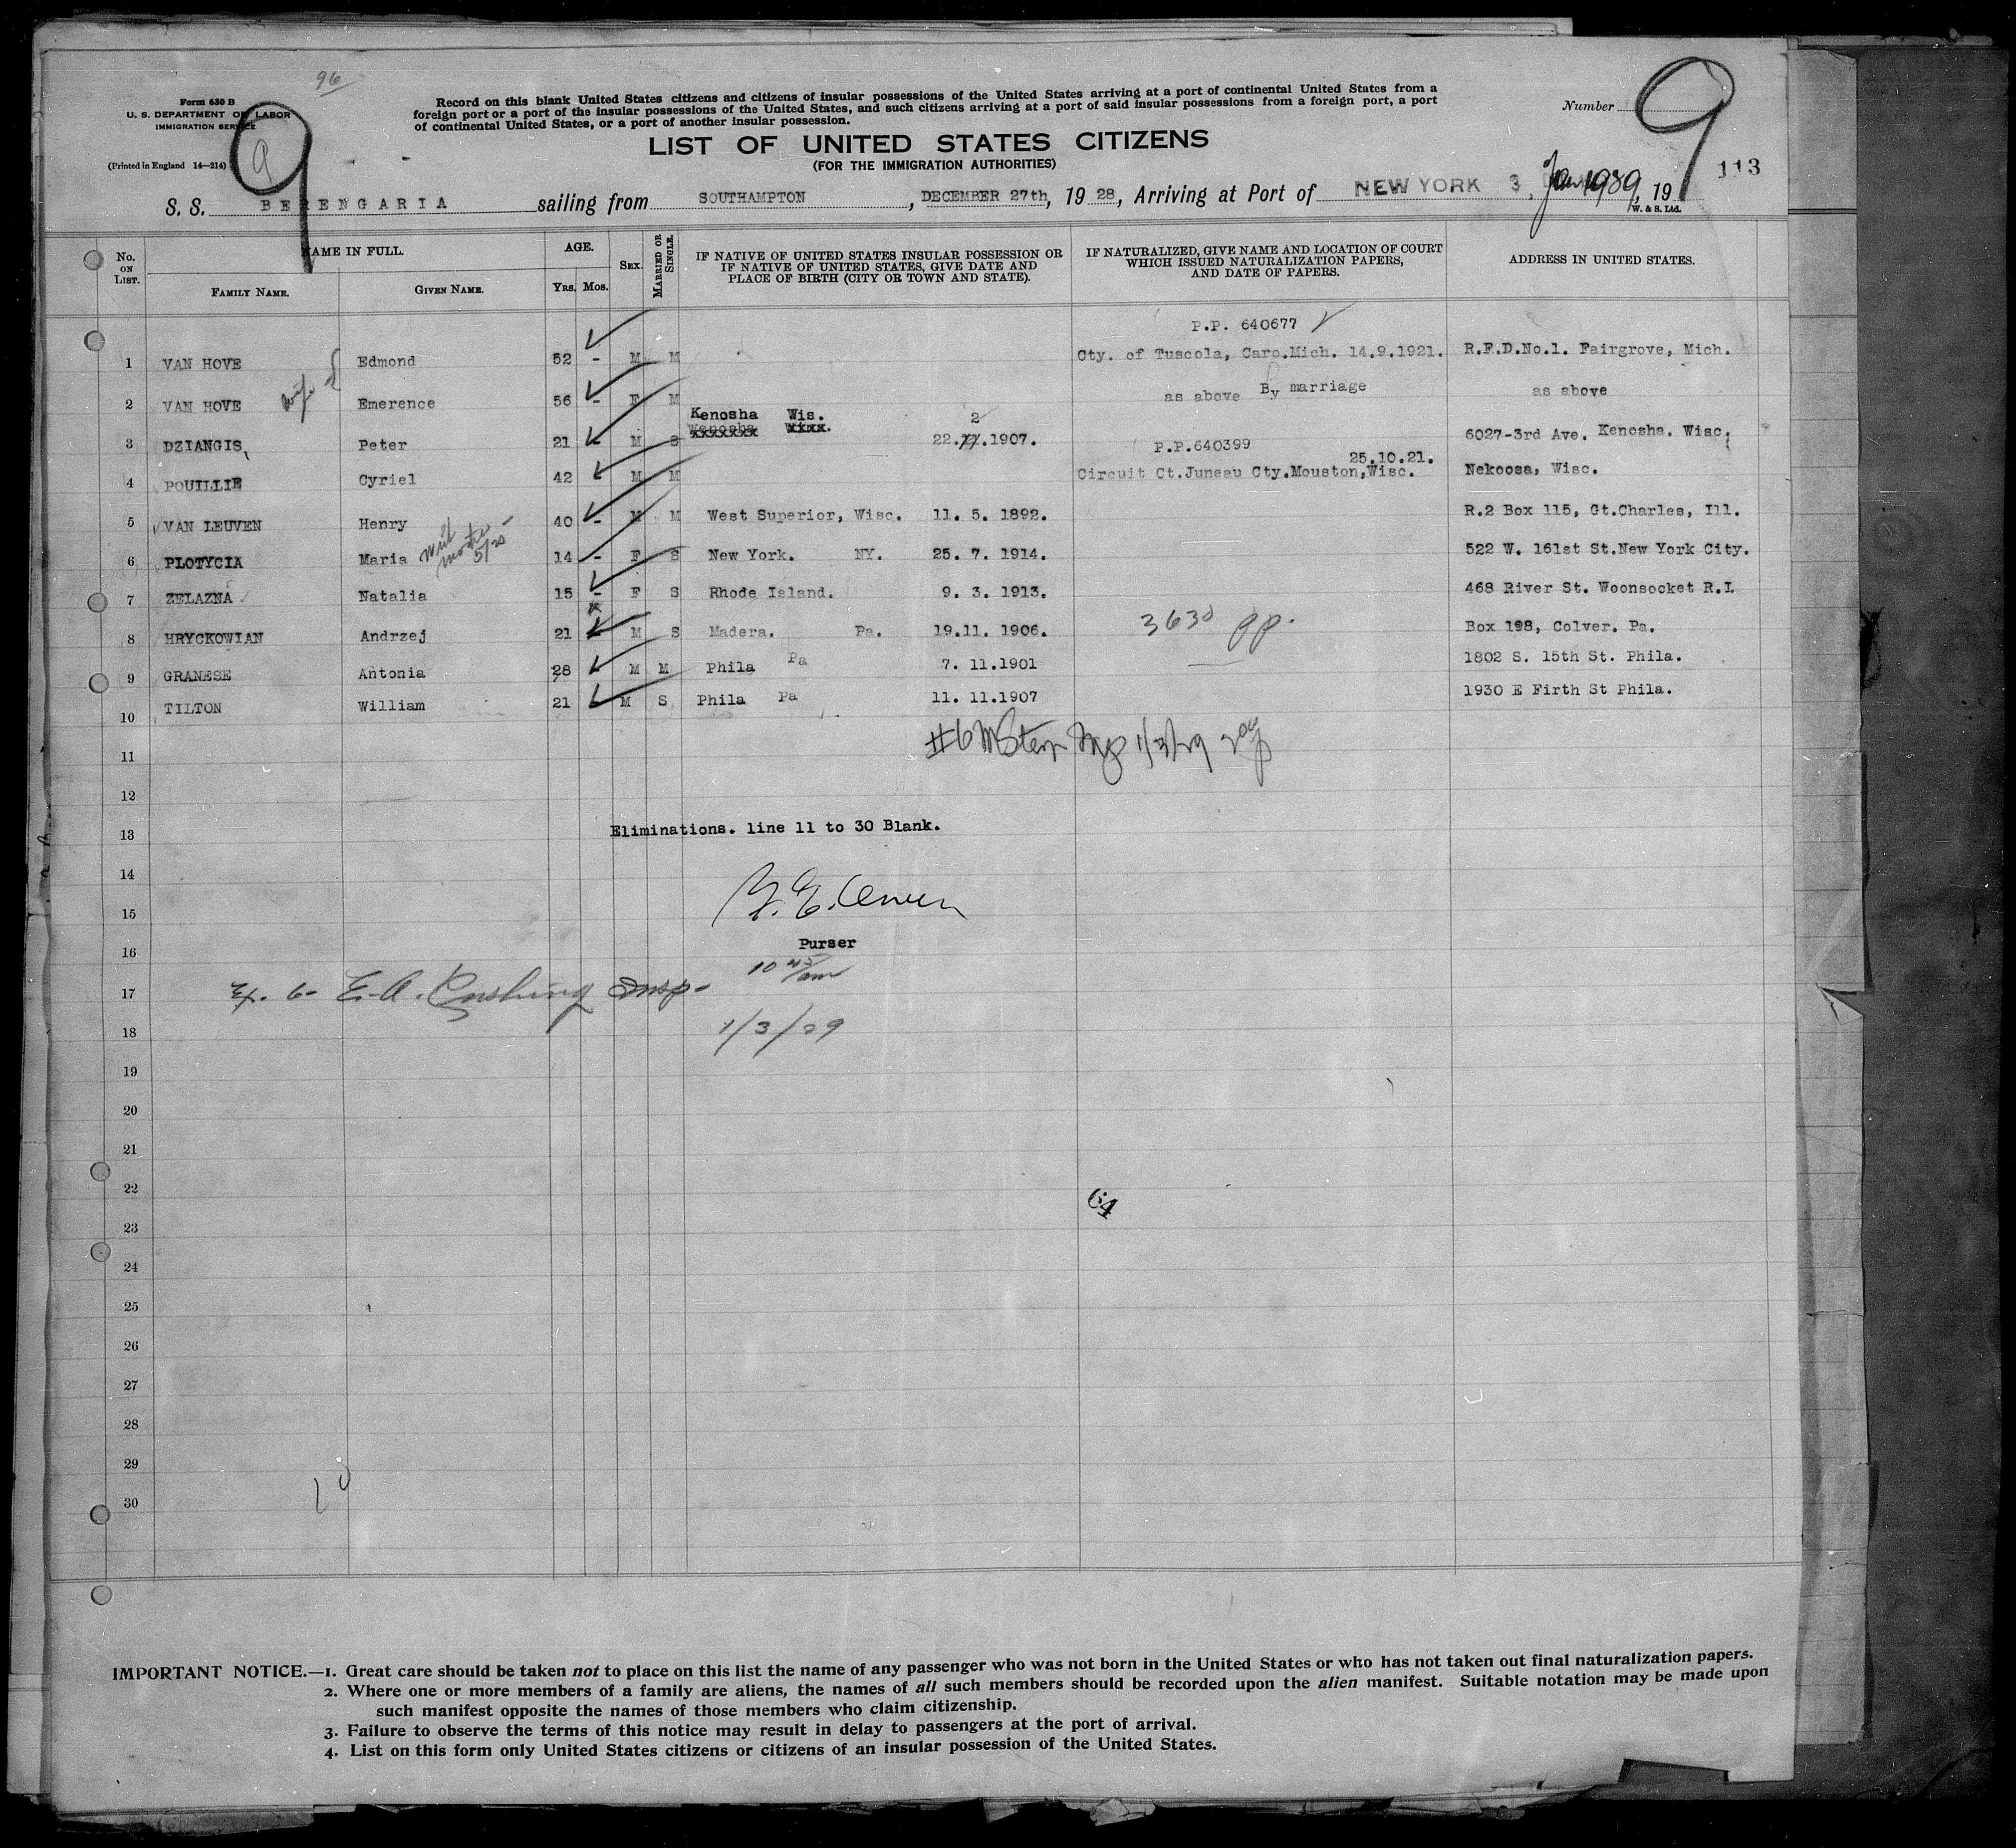 96
Form 630 B
U. S. DEPARTMENT OF LABOR
IMMIGRATION SERVICE
(Printed in England 14—214)
9
9
Record on this blank United States citizens and citizens of insular possessions of the United States arriving at a port of continental United States from a
foreign port or a port of the insular possessions of the United States, and such citizens arriving at a port of said insular possessions from a foreign port, a port
of continental United States, or a port of another insular possession.
Number 9
LIST OF UNITED STATES CITIZENS
(FOR THE IMMIGRATION AUTHORITIES)
113
S. S. BERENGARIA sailing from SOUTHAMPTON, DECEMBER 27th, 19 28, Arriving at Port of NEW YORK 3, Jan 1989, 19
W. & S. Ltd.
No. ON LIST. NAME IN FULL. FAMILY NAME. GIVEN NAME. AGE. YRS. MOS. SEX. MARRIED OR SINGLE. IF NATIVE OF UNITED STATES INSULAR POSSESSION OR IF NATIVE OF UNITED STATES, GIVE DATE AND PLACE OF BIRTH (CITY OR TOWN AND STATE). IF NATURALIZED, GIVE NAME AND LOCATION OF COURT WHICH ISSUED NATURALIZATION PAPERS, AND DATE OF PAPERS. ADDRESS IN UNITED STATES.
P.P. 640677
1 VAN HOVE Edmond 52 - M M Cty. of Tuscola, Caro.Mich. 14.9.1921. R.F.D.No.1. Fairgrove, Mich.
2 VAN HOVE wife Emerence 56 - F M as above By marriage as above
Kenosha Wis. 2
3 DZIANGIS, Peter 21 M S 22.xx.1907. P.P.640399 6027-3rd Ave. Kenosha. Wisc.
25.10.21.
4 POUILLIE Cyriel 42 M M Circuit Ct.Juneau Cty.Mouston,Wisc. Nekoosa, Wisc.
5 VAN LEUVEN Henry 40 - M M West Superior, Wisc. 11. 5. 1892. R.2 Box 115, Gt.Charles, Ill.
6 PLOTYCIA Maria 14 - F S New York. NY. 25. 7. 1914. 522 W. 161st St.New York City.
7 ZELAZNA Natalia 15 - F S Rhode Island. 9. 3. 1913. 468 River St. Woonsocket R.I.
8 HRYCKOWIAN Andrzej 21 M S Madera. Pa. 19.11. 1906. 3630 pp. Box 198, Colver. Pa.
9 GRANESE Antonia 28 M M Phila Pa 7. 11.1901 1802 S. 15th St. Phila.
10 TILTON William 21 M S Phila Pa 11. 11.1907 1930 E Firth St Phila.
11
12
13 Eliminations. line 11 to 30 Blank.
14
15
16 Purser
10 45/am
17 E.A. Cushing Insp-
18 1/3/29
19
20
21
22
64
23
24
25
26
27
28
29
30
IMPORTANT NOTICE.—1. Great care should be taken not to place on this list the name of any passenger who was not born in the United States or who has not taken out final naturalization papers.
2. Where one or more members of a family are aliens, the names of all such members should be recorded upon the alien manifest. Suitable notation may be made upon
such manifest opposite the names of those members who claim citizenship.
3. Failure to observe the terms of this notice may result in delay to passengers at the port of arrival.
4. List on this form only United States citizens or citizens of an insular possession of the United States.